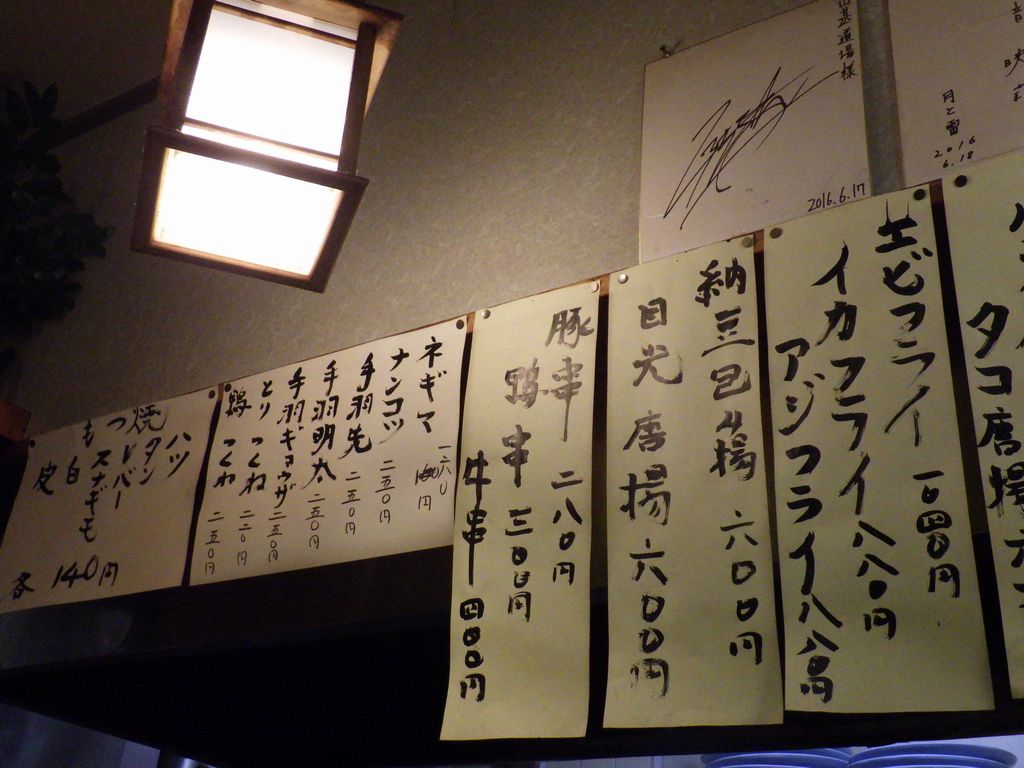 山基道場様
2016.6.17
月と雷
2016
6.18
タコ唐揚
エビフライ 一〇四〇円
イカフライ 八八〇円
アジフライ 八八〇円
納三包み揚 六〇〇円
目光唐揚 六〇〇円
豚串 二八〇円
鴨串 三〇〇円
牛串 四〇〇円
ネギマ 二六〇円
ナンコツ 二五〇円
手羽先 二五〇円
手羽明太 二五〇円
手羽ギョウザ 二五〇円
とりつくね 二二〇円
鶏つくね 二五〇円
焼もつ
ハツ
タン
レバー
スナギモ
白
皮
各140円